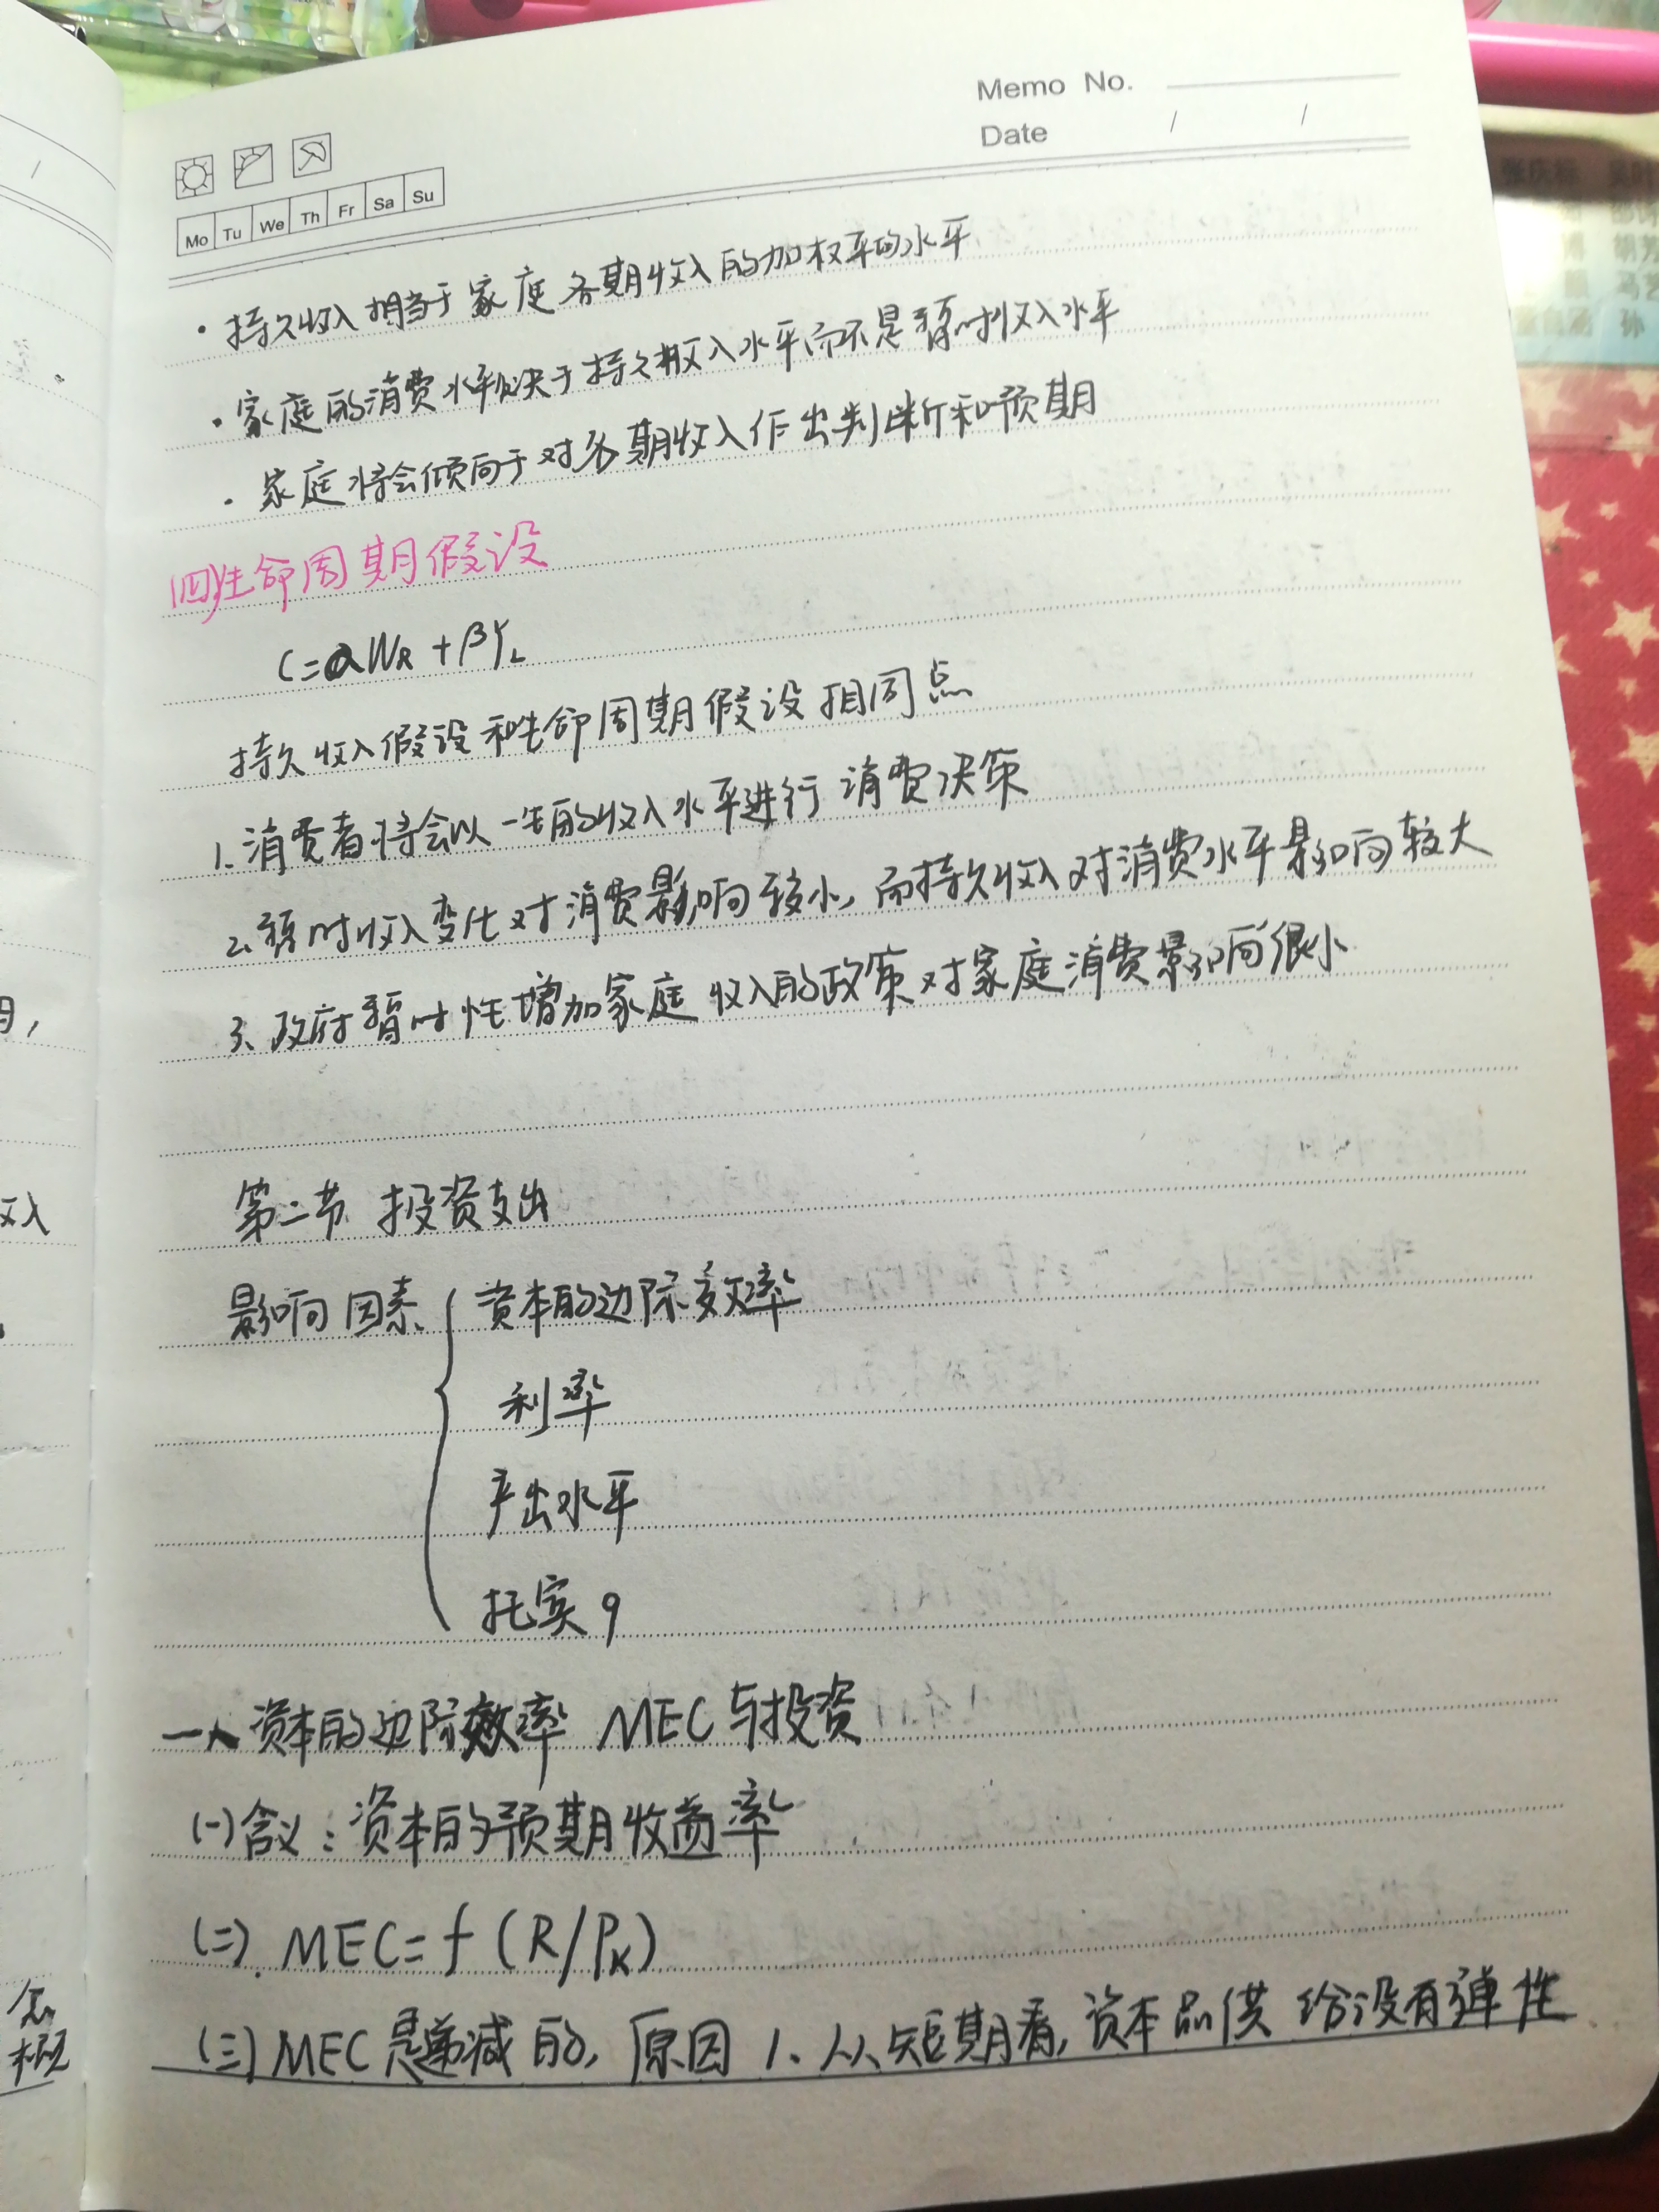 Memo No.
Date / /
Mo Tu We Th Fr Sa Su
·持久收入相当于家庭各期收入的加权平均水平
·家庭的消费水平取决于持久收入水平而不是暂时收入水平
·家庭将会倾向于对各期收入作出判断和预期
(四)生命周期假设
C=αWR+βYL
持久收入假设和生命周期假设相同点
1.消费者将会以一生的收入水平进行消费决策
2.暂时收入变化对消费影响较小,而持久收入对消费水平影响较大
3、政府暂时性增加家庭收入的政策对家庭消费影响很小
第二节 投资支出
影响因素 { 资本的边际效率
利率
产出水平
托宾q
一、资本的边际效率 MEC与投资
(一)含义:资本的预期收益率
(二).MEC=f(R/PK)
(三)MEC是递减的,原因 1、从短期看,资本品供给没有弹性
月,
收入
念
概